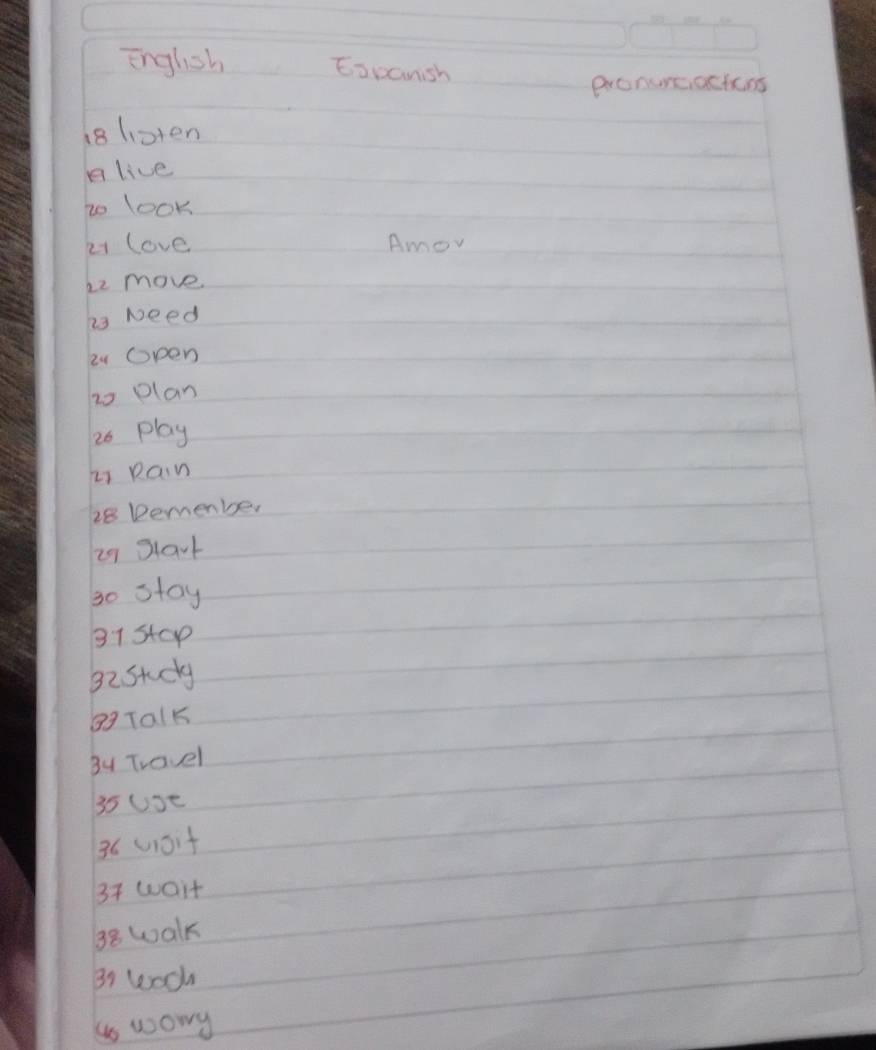 English Espanish pronunciactions
18 listen
19 live
20 look
21 love Amor
22 move
23 Need
24 Open
25 Plan
26 Play
27 Rain
28 Remenber
29 Start
30 stay
31 Stop
32 Study
33 Talk
34 Travel
35 Use
36 visit
37 wait
38 walk
39
40 worry